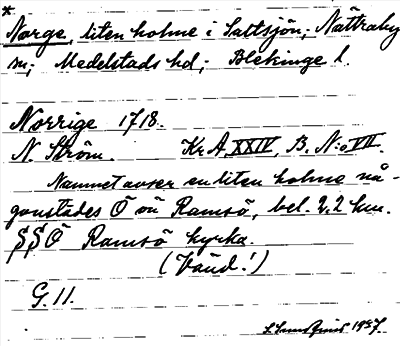 *
Norge, liten holme i Saltsjön; Nättraby
sn; Medelstads hd; Blekinge l.
Norrige 1718.
N. Ström. Kr. A. XXIV, B. N:o VII.
Namnet avser en liten holme nå-
gonstädes Ö om Ramsö, bel. 2,2 km.
SSÖ Ramsö kyrka.
(Vänd!)
G. 11.
1957.